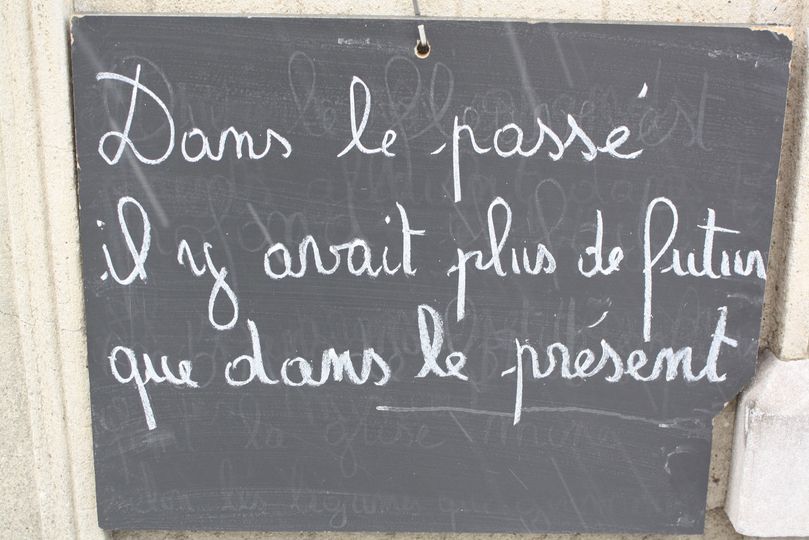 Dans le passé
il y avait plus de futur
que dans le présent